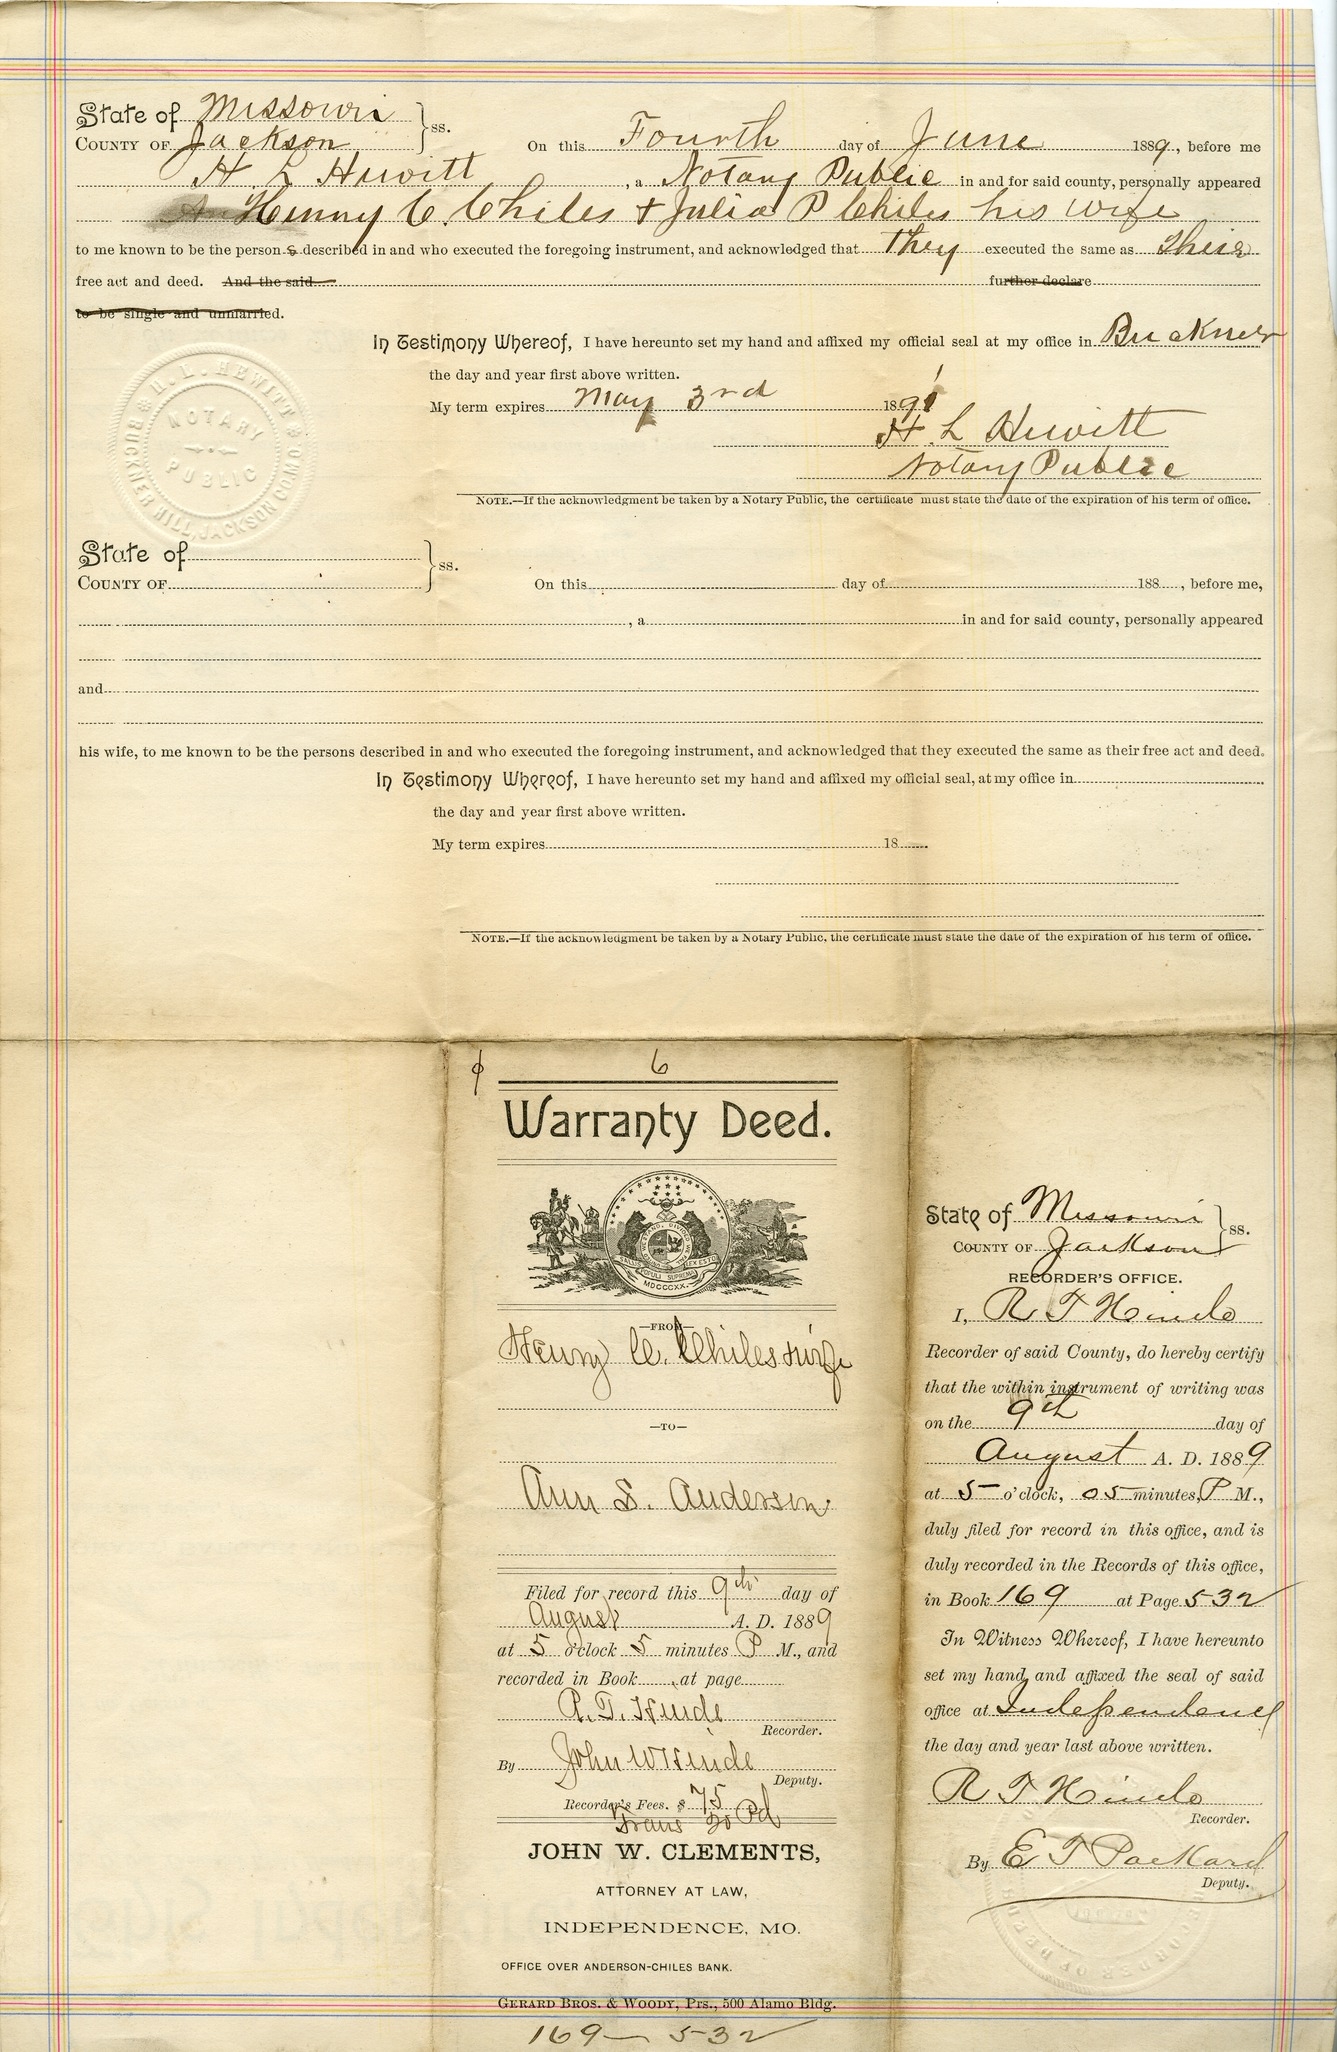 State of Missouri
COUNTY OF Jackson } ss. On this Fourth day of June 1889, before me
H L Hewitt , a Notary Public in and for said county, personally appeared
Henry C. Chiles + Julia P Chiles his wife
to me known to be the persons described in and who executed the foregoing instrument, and acknowledged that They executed the same as Their
free act and deed. And the said further declare
to be single and unmarried.
In Testimony Whereof, I have hereunto set my hand and affixed my official seal at my office in Buckner
the day and year first above written.
My term expires May 3rd 1891
H. L Hewitt
Notary Public
NOTE.—If the acknowledgment be taken by a Notary Public, the certificate must state the date of the expiration of his term of office.
H. L. HEWITT
NOTARY
PUBLIC
BUCKNER HILL, JACKSON CO MO
State of
COUNTY OF } ss. On this day of 188 , before me,
, a in and for said county, personally appeared
and
his wife, to me known to be the persons described in and who executed the foregoing instrument, and acknowledged that they executed the same as their free act and deed.
In Testimony Whereof, I have hereunto set my hand and affixed my official seal, at my office in
the day and year first above written.
My term expires 18
NOTE.—If the acknowledgment be taken by a Notary Public, the certificate must state the date of the expiration of his term of office.
6
Warranty Deed.
POPULI SUPREMA
MDCCCXX
—FROM—
Henry C. Chiles + wife
—TO—
Ann S. Anderson
Filed for record this 9th day of
August A. D. 1889
at 5 o'clock 5 minutes P M., and
recorded in Book , at page
R. T. Hinde
Recorder.
By John W Hinde
Deputy.
Recorder's Fees. $ 75
Trans 20 Pd
JOHN W. CLEMENTS,
ATTORNEY AT LAW,
INDEPENDENCE, MO.
OFFICE OVER ANDERSON-CHILES BANK.
GERARD BROS. & WOODY, Prs., 500 Alamo Bldg.
169— 532
State of Missouri
COUNTY OF Jackson } ss.
RECORDER'S OFFICE.
I, R T Hinde
Recorder of said County, do hereby certify
that the within instrument of writing was
on the 9th day of
August A. D. 1889
at 5 o'clock, 05 minutes, P M.,
duly filed for record in this office, and is
duly recorded in the Records of this office,
in Book 169 at Page 532
In Witness Whereof, I have hereunto
set my hand and affixed the seal of said
office at Independence
the day and year last above written.
R T Hinde
Recorder.
By E T Packard
Deputy.
RECORDER OF DEEDS